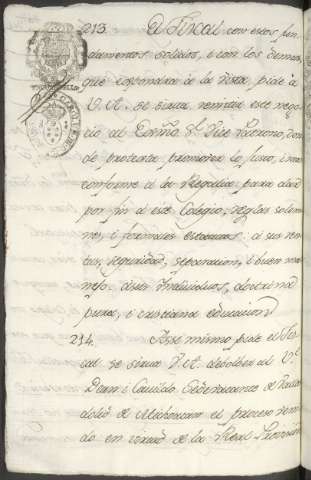 213. El Fiscal con estos fun
damentos solidos, i con los demas,
que expondra à la vista, pide à
V. A. se sirva remitir este nego
cio al Exmo. Sr. Vice Patrono, don
de protesta promover lo justo, i mas
conforme à la Regalia, para dar
por fin à este Colegio, reglas solem
nes, i formales estatutos: à sus ren
tas, seguridad, separacion, i buen ma
nejo: à sus Individuos, doctrina
pura, i cristiana educacion
214. Assi mismo pide el Fis
cal se sirva V. A. debolber al Ve.
Dean i Cavildo Sedevacante de Valla
dolid de Michoacan el proceso remiti
do en virtud de la Real Provision